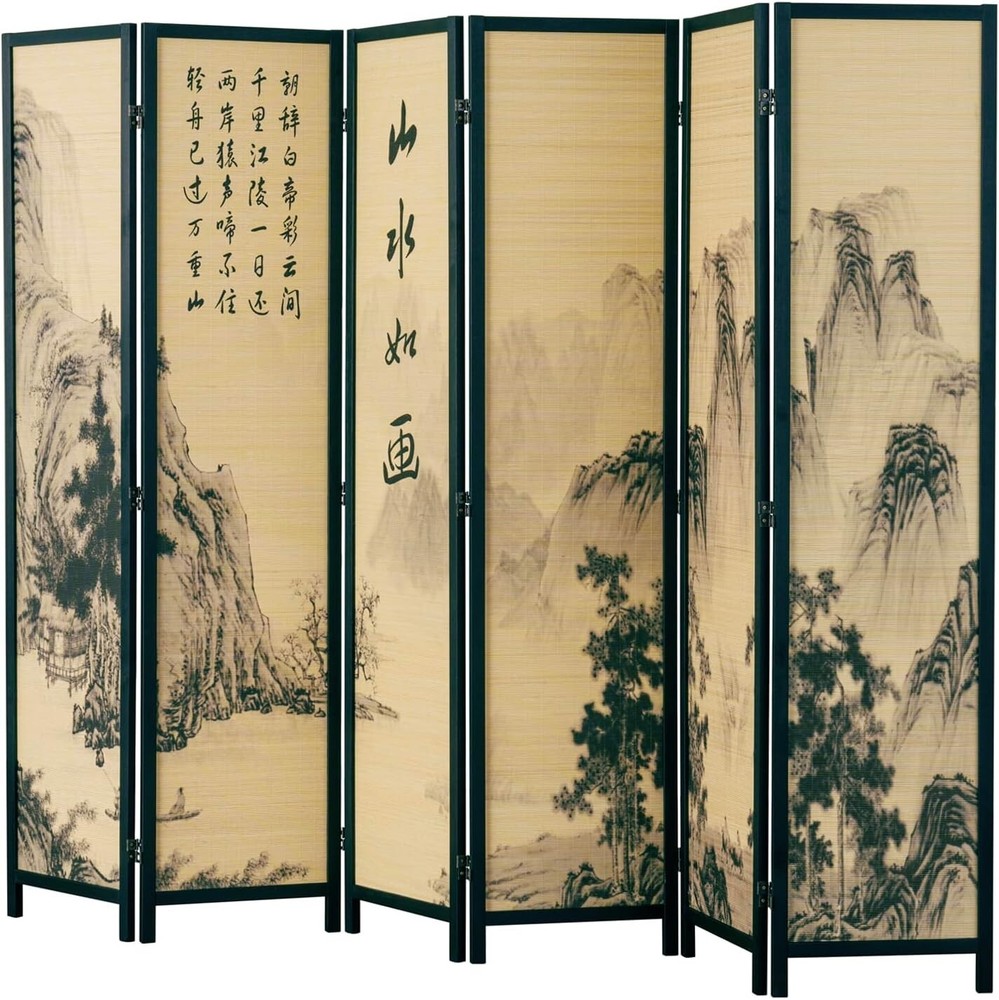 朝辞白帝彩云间
千里江陵一日还
两岸猿声啼不住
轻舟已过万重山
山水如画